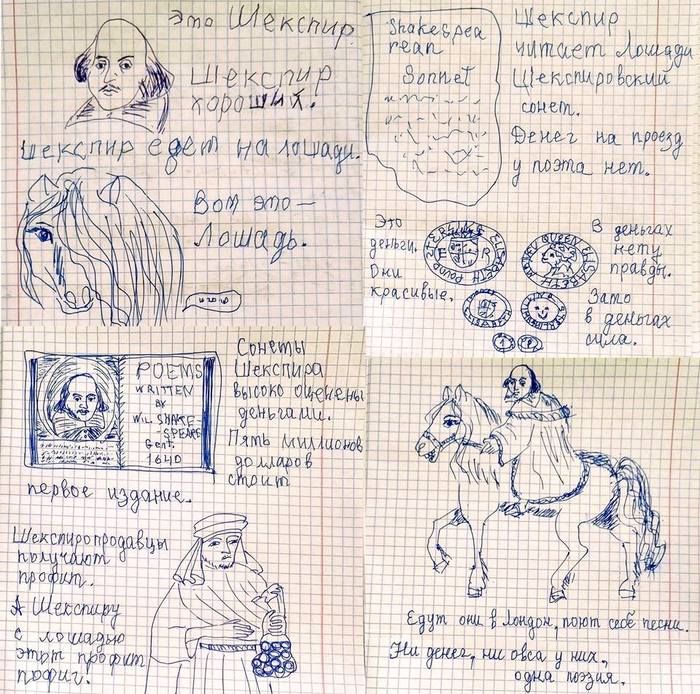 Это Шекспир.
Шекспир
хороший.
Шекспир едет на лошади.
Вот это —
Лошадь.
Shakespea
rean
Sonnet
Шекспир
читает Лошади
Шекспировский
сонет.
Денег на проезд
у поэта нет.
Это
деньги.
Они
красивые.
E R
В деньгах
нету
правды.
Зато
в деньгах
сила.
POEMS
WRITTEN
BY
WIL. SHAKE-
-SPEARE
Gent.
1640
Сонеты
Шекспира
высоко оценены
деньгами.
Пять миллионов
долларов
стоит
первое издание.
Шекспиропродавцы
получают
профит.
А Шекспиру
с лошадью
этот профит
пофиг.
Едут они в Лондон, поют себе песни.
Ни денег, ни овса у них,
одна поэзия.